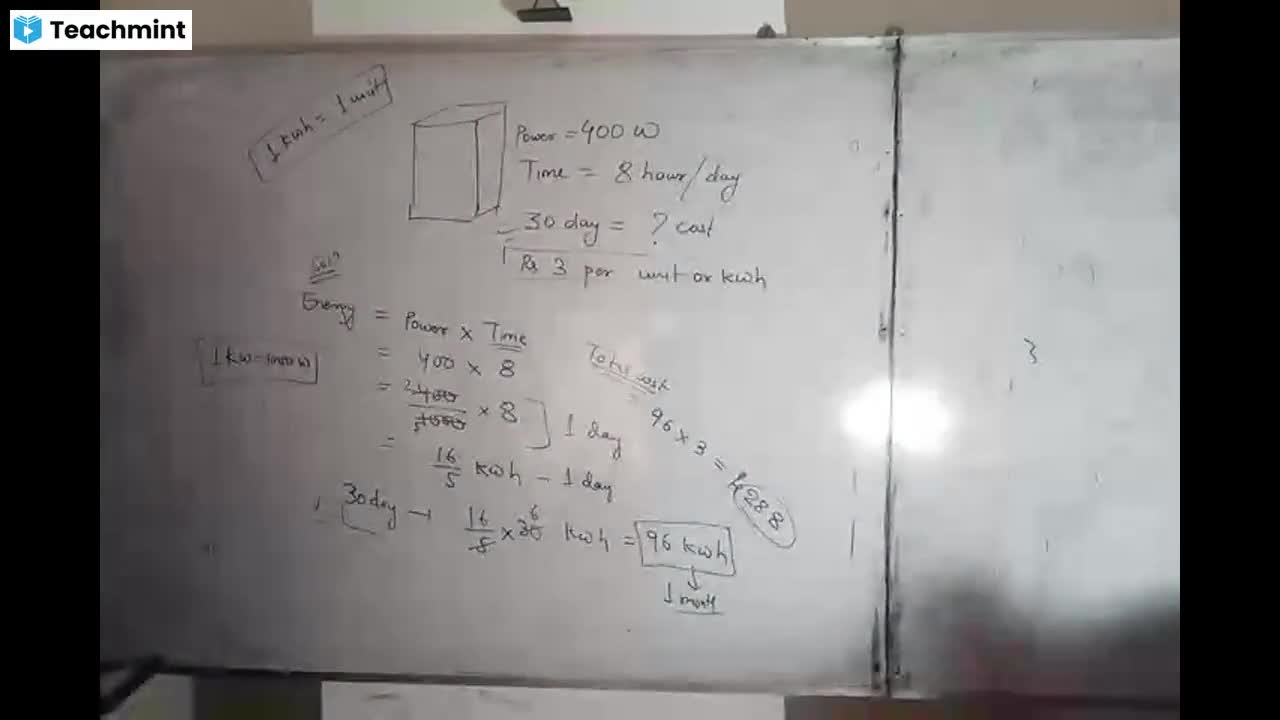 Teachmint
1 kwh = 1 unit
Power = 400 W
Time = 8 hour/day
30 day = ? cost
Rs 3 per unit or kwh
Soln
Energy = Power × Time
1 kw = 1000 w
= 400 × 8
= 2 400/5 1000 × 8
1 day
= 16/5 kwh - 1 day
30 day → 16/5 × 30 6 kwh = 96 kwh
1 month
Total cost
= 96 × 3 = ₹ 288